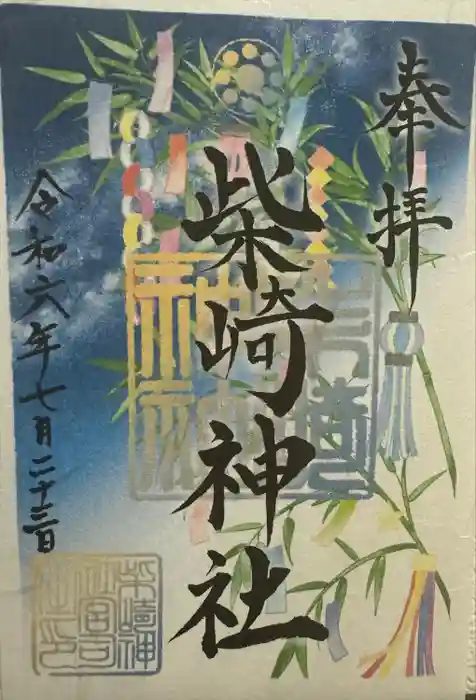 奉拝
柴崎神社
令和六年七月二十三日
柴崎神社宮司之印